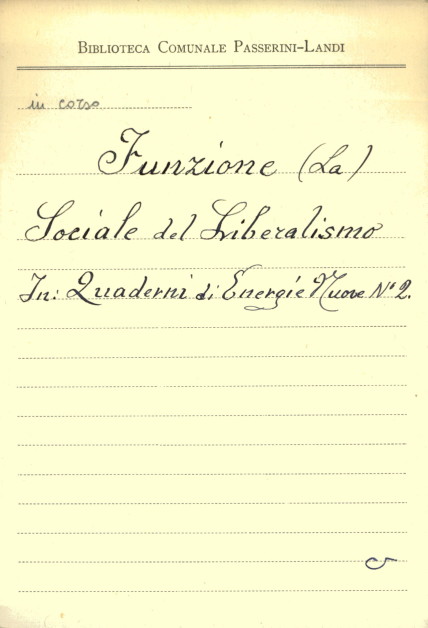 BIBLIOTECA COMUNALE PASSERINI-LANDI
in corso
Funzione (La)
Sociale del Liberalismo
In: Quaderni di Energie Nuove N° 2.